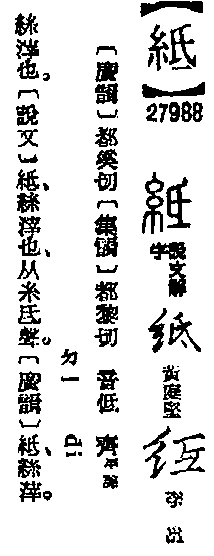 【𥿄】
27988
𥿄
說文解字
𥿄
黃庭堅
𥿄
李邕
〔廣韻〕都奚切〔集韻〕都黎切 音低 齊平聲
ㄉㄧ di
絲滓也。〔說文〕𥿄、絲滓也、从糸氐聲。〔廣韻〕𥿄、絲滓。